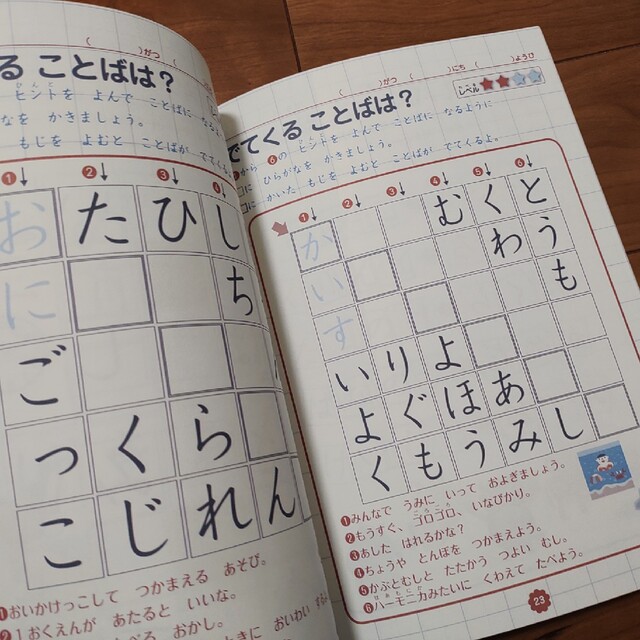 る ことばは?
ヒントを よんで ことばに なるよう
なを かきましょう。
もじを よむと ことばが でてくるよ
❶ ❷ ❸ ❹
お た ひ し
に ち
ご
っ く ら
こ じ れ ん
❶おいかけっこして つかまえる あそび。
❷1おくえんが あたると いいな。
( )がつ ( )にち ( )ようび
でてくる ことばは?
レベル
から ❻の ヒントを よんで ことばに なるように
に ひらがなを かきましょう。
に かいた もじを よむと ことばが でてくるよ。
❶ ❷ ❸ ❹ ❺ ❻
か む く と
い わ う
す も
い り よ
よ ぐ ほ あ
く も う み し
❶みんなで うみに いって およぎましょう。
❷もうすぐ、ゴロゴロ、いなびかり。
❸あした はれるかな?
❹ちょうや とんぼを つかまえよう。
❺かぶとむしと たたかう つよい むし。
❻ハーモニカみたいに くわえて たべよう。
23